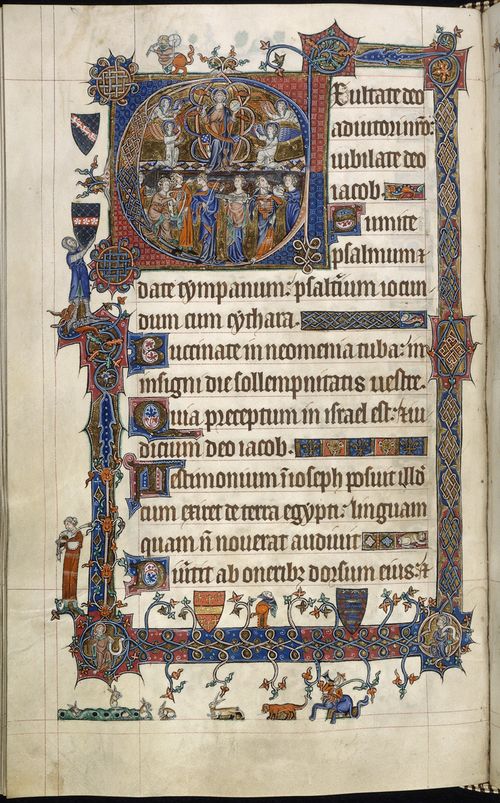 EXultate deo
adiutori nr̄o:
iubilate deo
iacob.
Sumite
psalmum ⁊
date tympanum: psaltīum iocun
dum cum cythara.
Buccinate in neomenia tuba: in
insigni die sollempnitatis uestre.
Quia preceptum in israel est: ⁊ iu
dicium deo iacob.
Testimonium ī ioseph posuit illd̄
cum exiret de terra egypti: linguam
quam n̄ nouerat audiuit
Diūtit ab oneribꝫ dorsum eius: ⁊